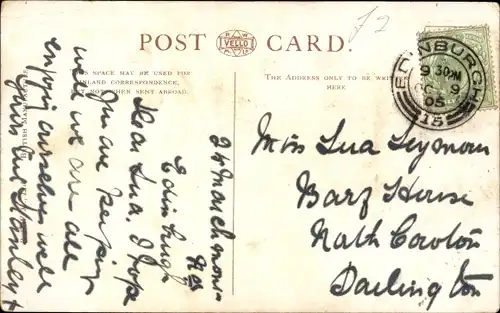 POST CARD.
VELLO
THIS SPACE MAY BE USED FOR
INLAND CORRESPONDENCE,
BUT NOT WHEN SENT ABROAD.
THE ADDRESS ONLY TO BE WRITTEN
HERE
EDINBURGH
9 30PM
OC 9
05
15
Miss Lua Seymour
Barf House
North Cowton
Darlington
24 Marchmont
Rd
Edinburgh
Dear Lua. I hope
you are keeping
well we are all
enjoying ourselves well
Stanley